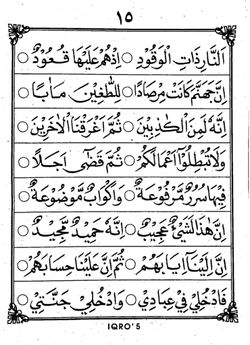 ١٥
النَّارِ ذَاتِ الْوَقُوْدِ ○ اِذْ هُمْ عَلَيْهَا قُعُوْدٌ ○
اِنَّ جَهَنَّمَ كَانَتْ مِرْصَادًا ○ لِلطّٰغِيْنَ مَاٰبًا ○
اِنَّهُ لَمِنَ الْكٰذِبِيْنَ ○ ثُمَّ اَغْرَقْنَا الْاٰخَرِيْنَ ○
وَلَا تُبْطِلُوْا اَعْمَالَكُمْ ○ ثُمَّ قَضٰى اَجَلًا ○
فِيْهَا سُرُرٌ مَرْفُوْعَةٌ ○ وَاَكْوَابٌ مَوْضُوْعَةٌ ○
اِنَّ هٰذَا لَشَيْئٌ عَجِيْبٌ ○ اِنَّهُ حَمِيْدٌ مَجِيْدٌ ○
اِنَّ اِلَيْنَا اِيَابَهُمْ ○ ثُمَّ اِنَّ عَلَيْنَا حِسَابَهُمْ ○
فَادْخُلِيْ فِيْ عِبَادِيْ ○ وَادْخُلِيْ جَنَّتِيْ ○
IQRO'5